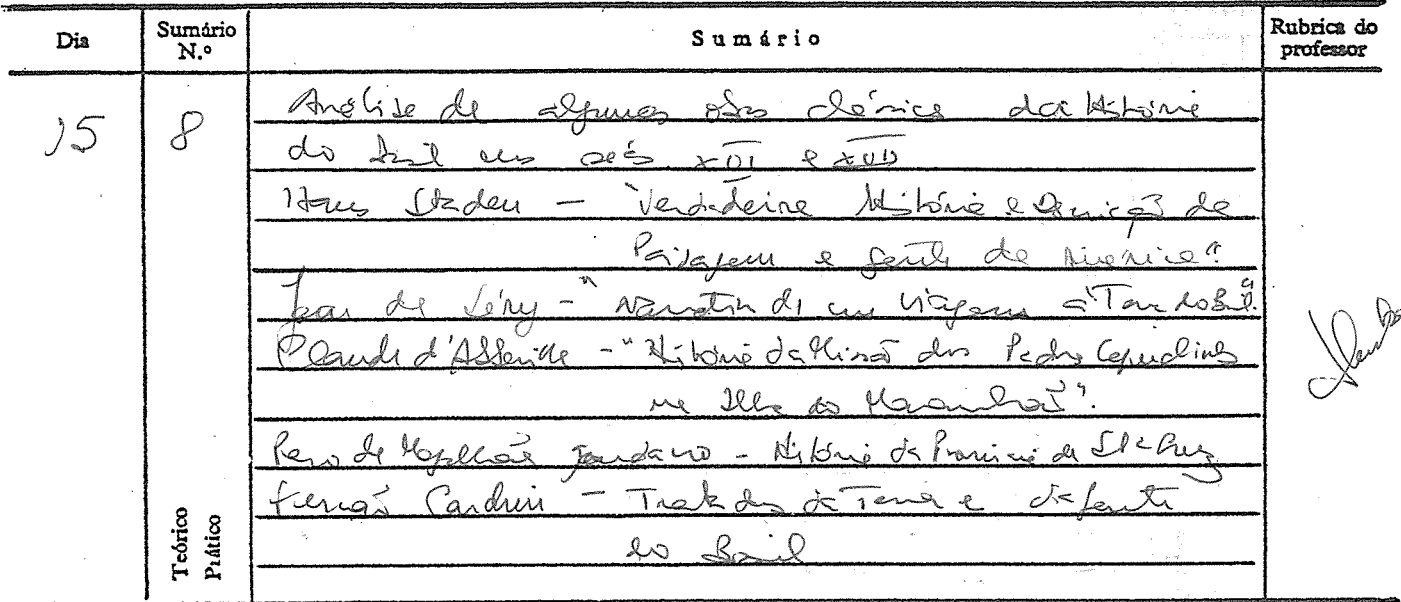 Dia
Sumário N.º
Sumário
Rubrica do professor
15
8
Análise de algumas obras clássicas da História
do Brasil nos sécs XVI e XVII
Hans Staden - "Verdadeira História e Descrição da
Paisagem e Gente da América".
Jean de Léry - "Narrativa de uma Viagem à Terra do Brasil".
Claude d'Abbeville - "História da Missão dos Padres Capuchinhos
na Ilha do Maranhão".
Pero de Magalhães Gandavo - História da Província de Sta Cruz
Fernão Cardim - Tratados da Terra e da Gente
do Brasil
Teórico
Prático